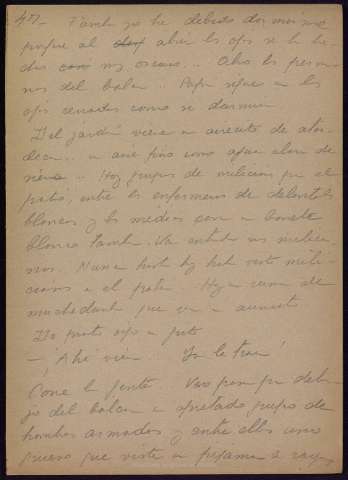 47)- Tamb yo he debido dormirme
porque al abrir los ojos se ha he-
cho mas oscuro.. Abro las persia-
nas del balcon.. Papa sigue con los
ojos cerrados como si durmiera
Del jardin viene un airecito de atar-
decer.. un aire fino como agua clara de
nieve.. Hay grupos de milicianos en el
patio, entre los enfermeros de delantales
blancos y los medicos con su bonete
blanco tamb. Va entrando mas milicia-
nos. Nunca hasta hoy habia visto mili-
cianos en el patio. Hay un rumor de
muchedumbre que va en aumento
De pronto oigo un grito
— ¡Ahi viene! ¡Ya le traen!
Corre la gente. Veo pasar por deba-
jo del balcon un apretado grupo de
hombres armados y entre ellos uno
grueso que viste un pijama a rayas